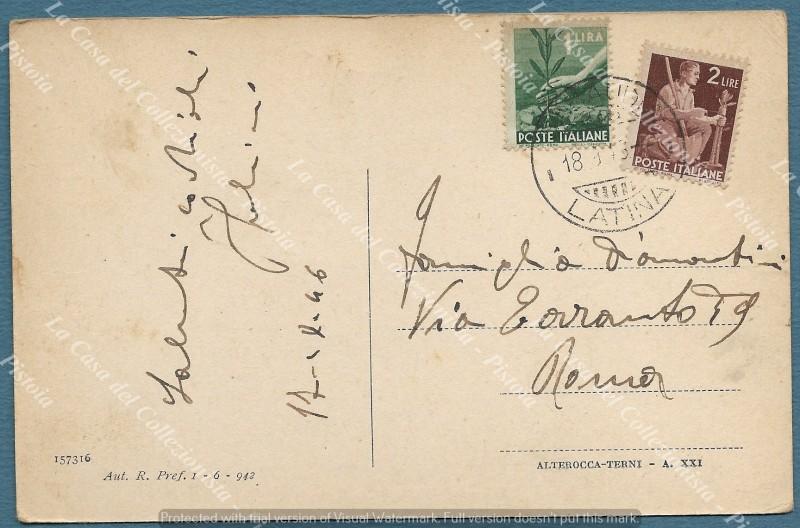 1 LIRA
POSTE ITALIANE
2 LIRE
POSTE ITALIANE
18
LATINA
Saluti cordiali
17-
46
Famiglia Diamantini
Via Taranto 59
Roma
157316
Aut. R. Pref. 1 - 6 - 942
ALTEROCCA-TERNI - A. XXI
La Casa del Collezionista - Pistoia
Protected with trial version of Visual Watermark. Full version doesn't put this mark.